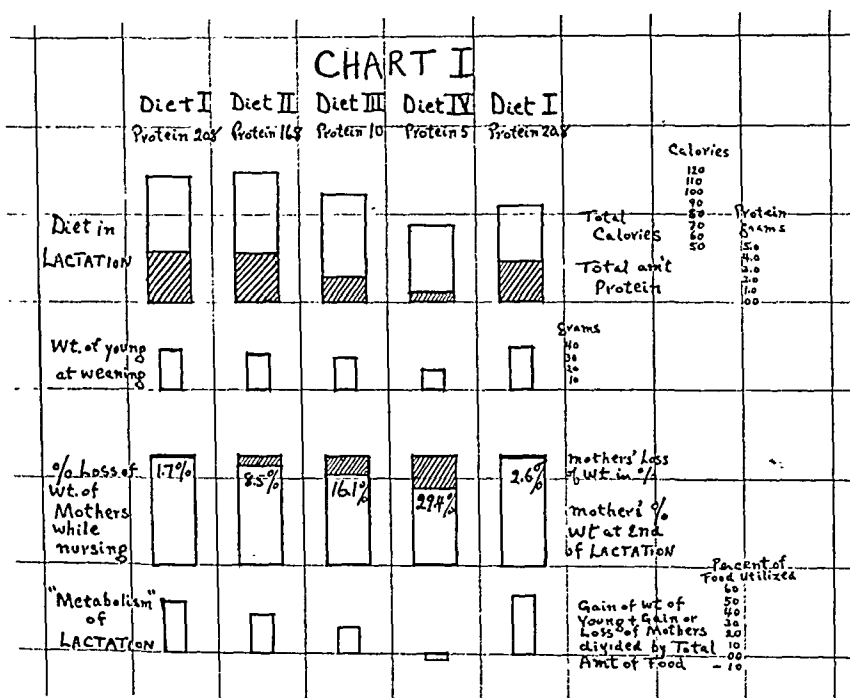 CHART I
Diet I Diet II Diet III Diet IV Diet I
Protein 20.8 Protein 16.8 Protein 10 Protein 5 Protein 20.8
Calories
120
110
100
90
80
70
60
50
Protein
grams
5.0
4.0
3.0
2.0
1.0
00
Diet in
LACTATION
Total
Calories
Total am't
Protein
Wt. of young
at weaning
grams
40
30
20
10
% Loss of
Wt. of
Mothers
while
nursing
1.7% 8.5% 16.1% 29.4% 2.6%
mothers' Loss
of Wt in %
mothers' %
Wt at 2nd
of LACTATION
"Metabolism"
of
LACTATION
Gain of wt of
Young + Gain or
Loss of Mothers
divided by Total
Amt of Food
Percent of
Food Utilized
60
50
40
30
20
10
00
-10